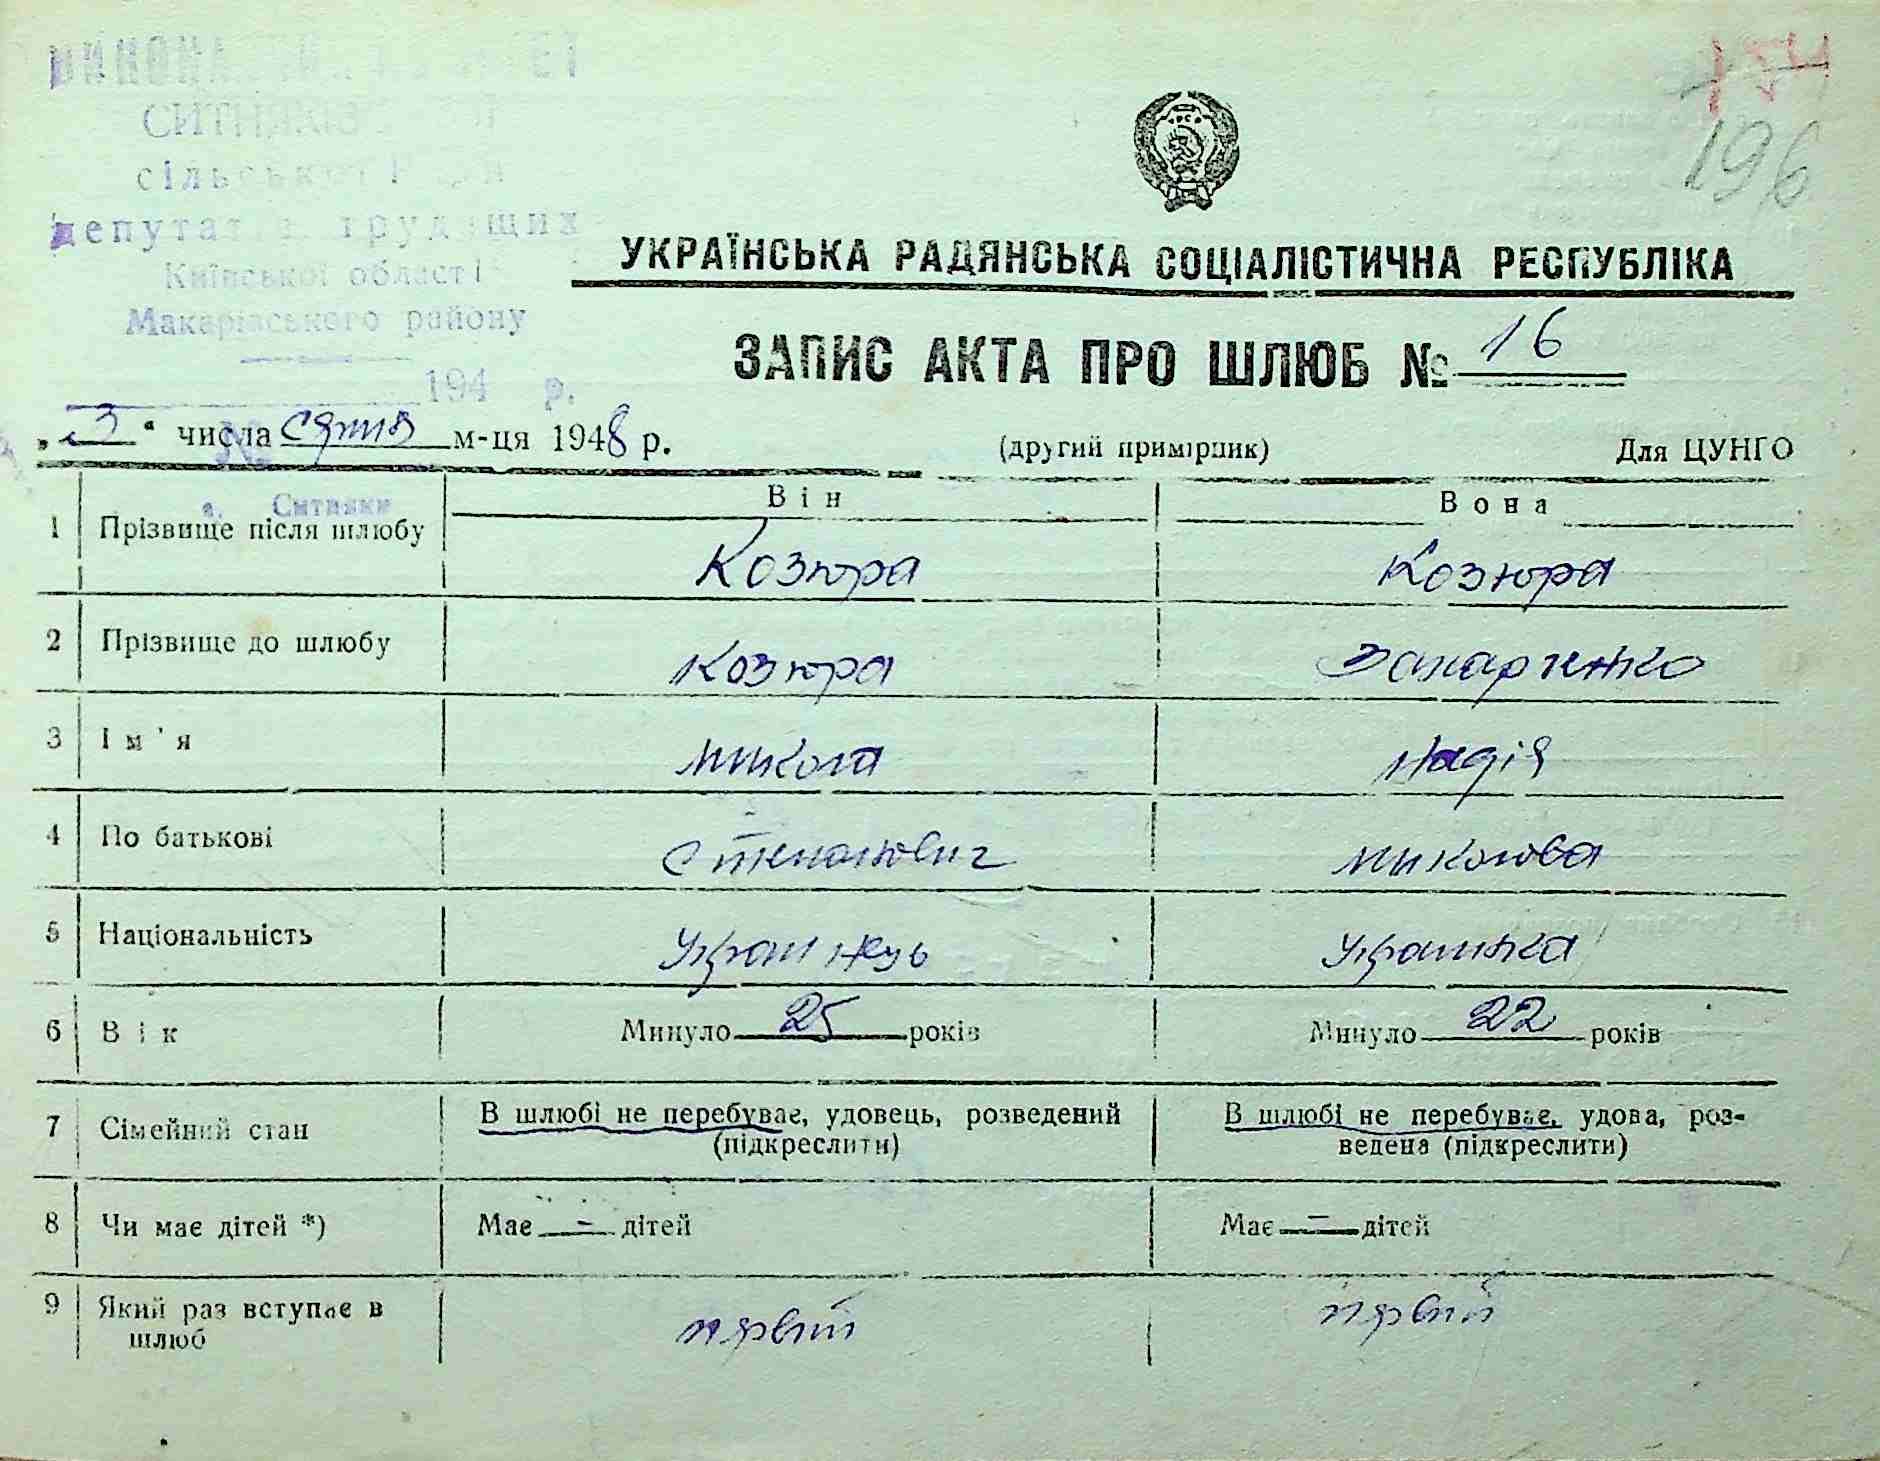 СИТНЯКІВСЬКОЇ
сільської Ради
депутатів трудящих
Київської області
Макарівського району
194 р.
№
с. Ситняки
154
196
УКРАЇНСЬКА РАДЯНСЬКА СОЦІАЛІСТИЧНА РЕСПУБЛІКА
ЗАПИС АКТА ПРО ШЛЮБ № 16
„ 3 “ числа м-ця 1948 р. (другий примірник) Для ЦУНГО
Він Вона
1 Прізвище після шлюбу Козюра Козюра
2 Прізвище до шлюбу Козюра Захарченко
3 Ім'я Микола Надія
4 По батькові Степанович Миколова
5 Національність Українець Украинка
6 Вік Минуло 25 років Минуло 22 років
7 Сімейний стан В шлюбі не перебуває, удовець, розведений В шлюбі не перебуває, удова, роз-
(підкреслити) ведена (підкреслити)
8 Чи має дітей *) Має - дітей Має - дітей
9 Який раз вступає в первий первий
шлюб